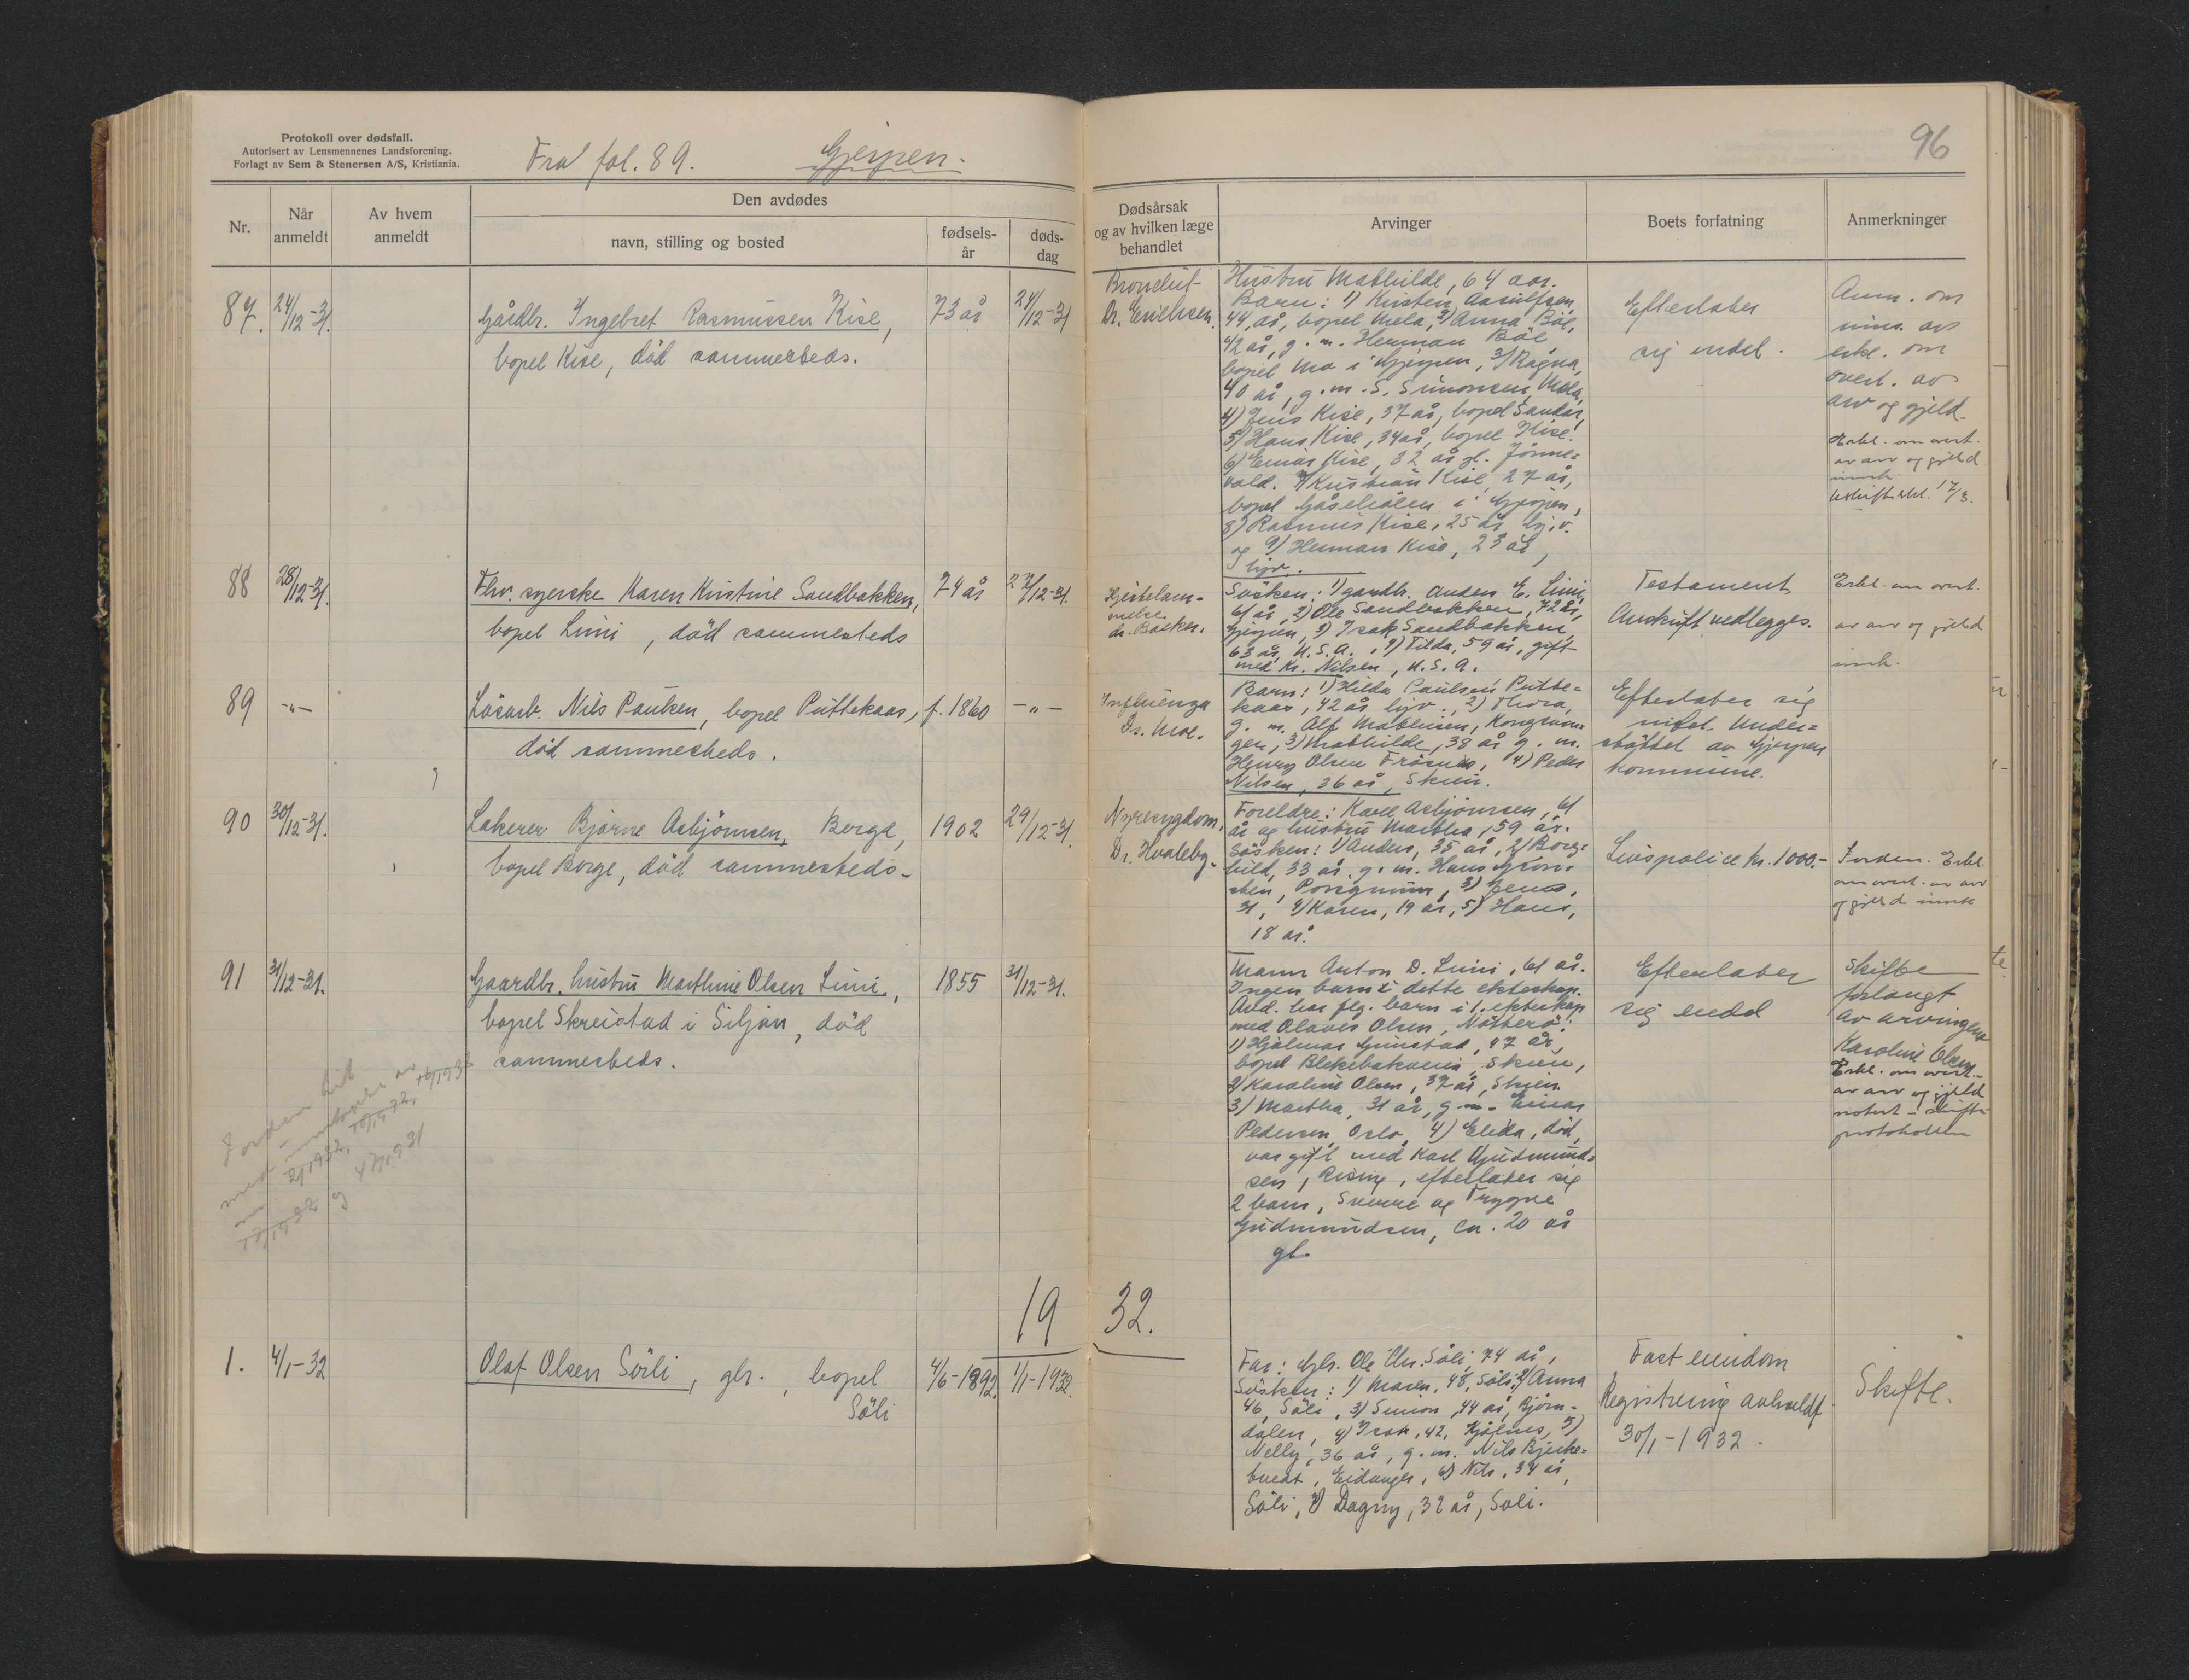 Protokoll over dødsfall.
Autorisert av Lensmennenes Landsforening.
Forlagt av Sem & Stenersen A/S, Kristiania.
Fra fol. 89. Gjerpen.
96
Nr.
Når anmeldt
Av hvem anmeldt
Den avdødes
navn, stilling og bosted
fødsels-år
døds-dag
Dødsårsak og av hvilken læge behandlet
Arvinger
Boets forfatning
Anmerkninger
87. 24/12-31.
Gårdbr. Ingebret Rasmussen Kise,
bopel Kise, död sammesteds.
73 år
24/12-31
Dr. Erichsen.
Hustru Mathilde, 64 aar.
Barn: 1) Kirsten Aasulfsen,
44 år, bopel Mela, 2) Anna Böe,
42 år, g. m. Herman Böe,
bopel Mo i Gjerpen, 3) Ragna,
40 år, g. m. S. Simonsen, Mela,
4) Jens Kise, 37 år, bopel Sandar,
5) Hans Kise, 34 år, bopel Kise.
6) Einar Kise, 32 år gl. Jönne=
vald. 7) Kristian Kise, 27 år,
bopel Gåseholen i Gjerpen,
8) Rasmus Kise, 25 år hj.v.
og 9) Herman Kise, 23 år,
hjv.
Efterlater
sig endel.
Anm. om
erkl. om
overt. av
arv og gjeld
Erkl. om overt.
av arv og gjeld
innk.
88 28/12-31.
Fhv. syerske Karen Kristine Sandbakken,
bopel Limi, död sammesteds
74 år
27/12-31.
Hjertelam-
melse.
dr. Backer.
Sösken: 1) gaardbr. Anders E. Limi,
61 år, 2) Ole Sandbakken, 72 år,
Gjerpen, 3) Isak Sandbakken,
63 år, U.S.A., 4) Tilda, 59 år, gift
med Kr. Nilsen, U.S.A.
Testament
Avskrift vedlegges.
Erkl. om overt.
av arv og gjeld
innk.
89 -"-
Lösarb. Nils Paulsen, bopel Puttekaas,
död sammesteds.
f. 1860
-"-
Influenza
Dr. Moe.
Barn: 1) Hilda Paulsen Putte=
kaas, 42 år hjv., 2) Thora,
g. m. Alf Mathisen, Kongsvin=
ger, 3) Mathilde, 38 år g. m.
Henry Olsen Frösnes, 4) Peder
Nilsen, 36 år, Skien.
Efterlater sig
intet. Under=
støttet av Gjerpen
kommune.
90 30/12-31.
Lakerer Bjarne Asbjörnsen, Borge,
bopel Borge, död sammesteds.
1902
29/12-31.
Nyresygdom,
Dr. Hvaleby.
Foreldre: Karl Asbjörnsen, 61
år og hustru Martha, 59 år.
Sösken: 1) Anders, 35 år, 2) Borg=
hild, 33 år, g. m. Hans
Porsgrunn, 3) Jens,
31, 4) Karen, 19 år, 5) Hans,
18 år.
Livspolice kr. 1000.-
Erkl.
om overt. av arv
og gjeld innk
91 31/12-31.
Gaardbr. hustru Marthine Olsen Limi,
bopel Skreistad i Siljan, död
sammesteds.
1855
31/12-31.
Mann Anton D. Limi, 61 år.
Ingen barn i dette ekteskap.
Avd. har flg. barn i 1. ekteskap
med Olaves Olsen, Nötterö:
1) Hjalmar Grinstad, 47 år,
bopel Blekebakveien, Skien,
2) Karoline Olsen, 37 år, Skien
3) Martha, 31 år, g. m. Einar
Pedersen, Oslo, 4) Elida, död,
var gift med Karl Gudmund=
sen, Rising, efterlater sig
2 barn, Sverre og Trygve
Gudmundsen, ca. 20 år
gl.
Efterlater
sig endel
Skifte
forlangt
av arvingene
Karoline Olsen
Erkl. om overt.
av arv og gjeld
notert i skifte-
protokollen
1932.
1. 4/1-32
Olaf Olsen Söli, gbr., bopel
Söli
4/6-1892.
1/1-1932.
Far: Gbr. Ole Chr. Söli, 74 år,
Sösken: 1) Maren, 48, Söli, 2) Anna
46, Söli, 3) Simon, 44 år, Björn-
dalen, 4) Isak, 42, Hjölnes, 5)
Nelly, 36 år, g. m. Nils Bjerke-
buedt, Eidanger, 6) Nils, 34 år,
Söli, 7) Dagny, 32 år, Söli.
Fast eiendom
Registrering avholdt
30/1-1932.
Skifte.